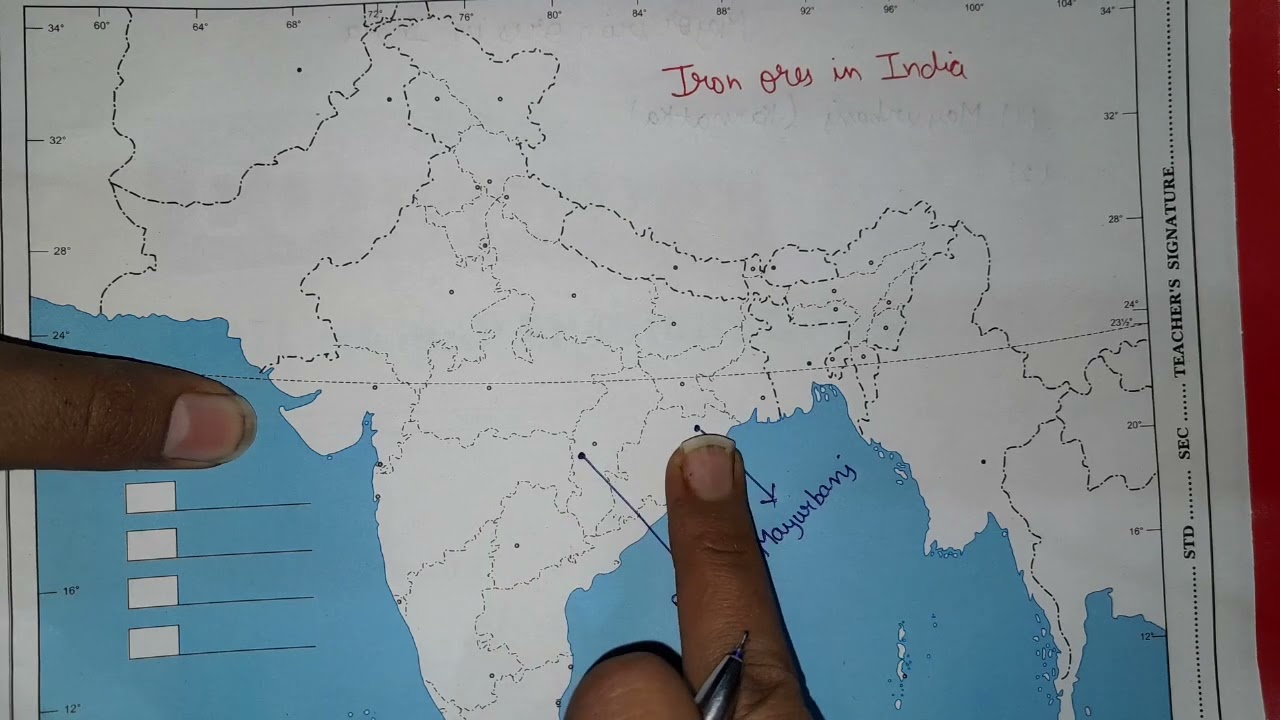 60° 64° 68° 72° 76° 80° 84° 88° 92° 96° 100° 104°
34° 34°
Iron ores in India
32° 32°
28° 28°
24° 24°
23½°
20°
16° 16°
12° 12°
Mayurbanj
STD SEC TEACHER'S SIGNATURE